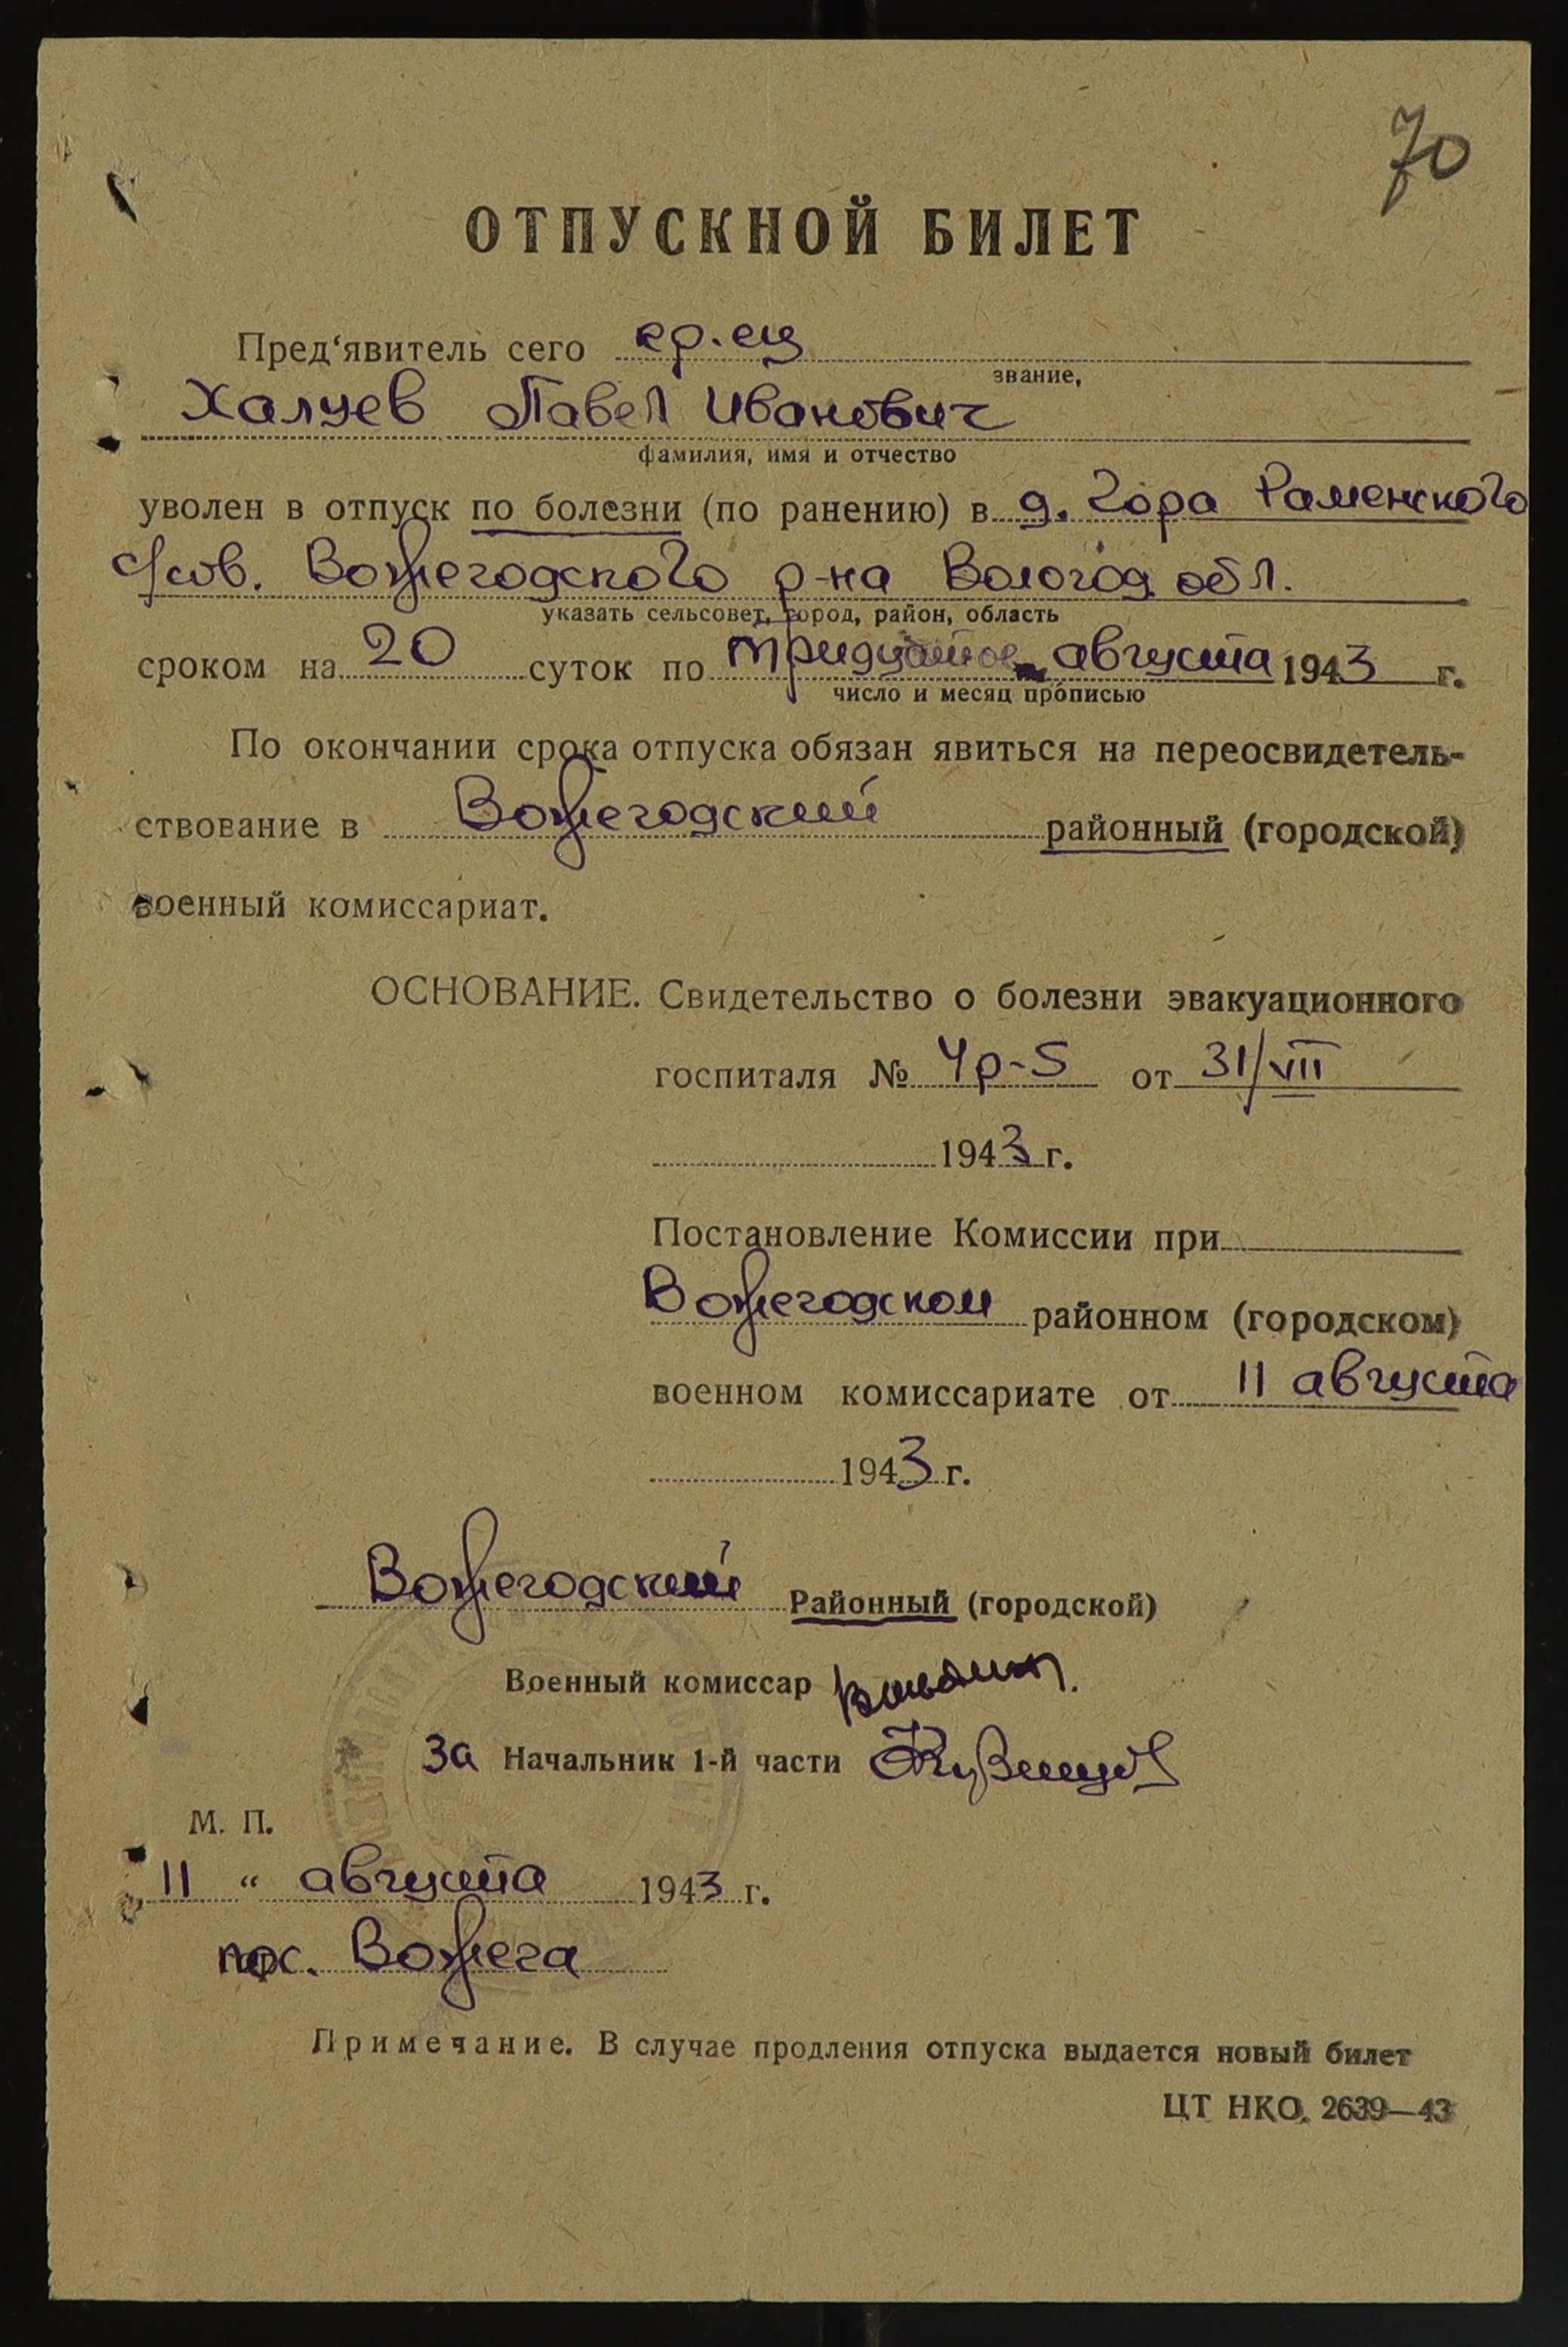 70
ОТПУСКНОЙ БИЛЕТ
Пред‘явитель сего кр.ец
звание,
Халуев Павел Иванович
фамилия, имя и отчество
уволен в отпуск по болезни (по ранению) в д. Гора Раменского
с/сов. Вожегодского р-на Вологод. обл.
указать сельсовет, город, район, область
сроком на 20 суток по тридцатое августа 1943 г.
число и месяц прописью
По окончании срока отпуска обязан явиться на переосвидетель-
ствование в Вожегодский районный (городской)
военный комиссариат.
ОСНОВАНИЕ. Свидетельство о болезни эвакуационного
госпиталя № Чр-5 от 31/VII
1943 г.
Постановление Комиссии при
Вожегодском районном (городском)
военном комиссариате от 11 августа
1943 г.
Вожегодский Районный (городской)
Военный комиссар
За Начальник 1-й части
М. П.
11 “ августа 1943 г.
пос. Вожега
Примечание. В случае продления отпуска выдается новый билет
ЦТ НКО. 2639—43